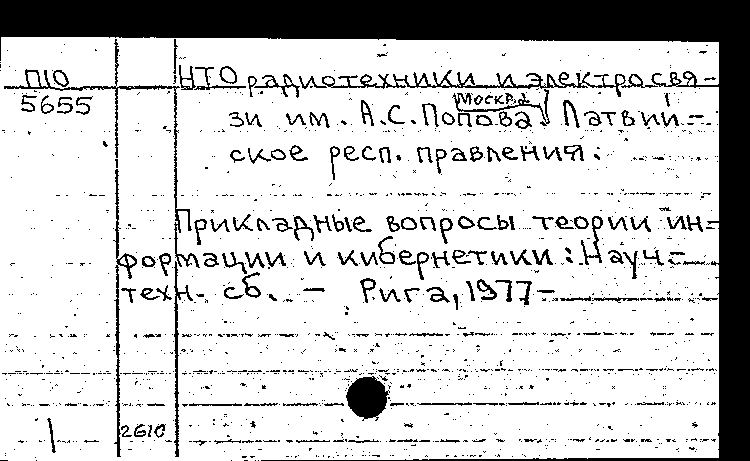 П10
5655
НТО радиотехники и электросвя-
Москва
зи им. А.С.Попова. Латвий-
ское респ. правления.
Прикладные вопросы теории ин-
формации и кибернетики: Науч.-
техн. сб. — Рига, 1977-
2610